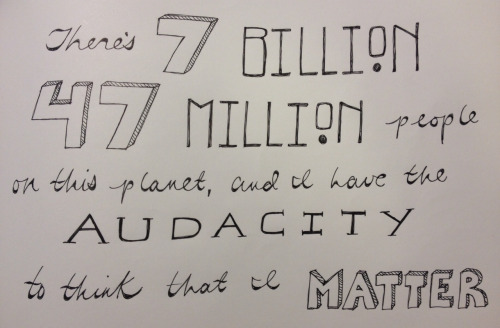 There's 7 BILLION
47 MILLION people
on this planet, and I have the
AUDACITY
to think that I MATTER